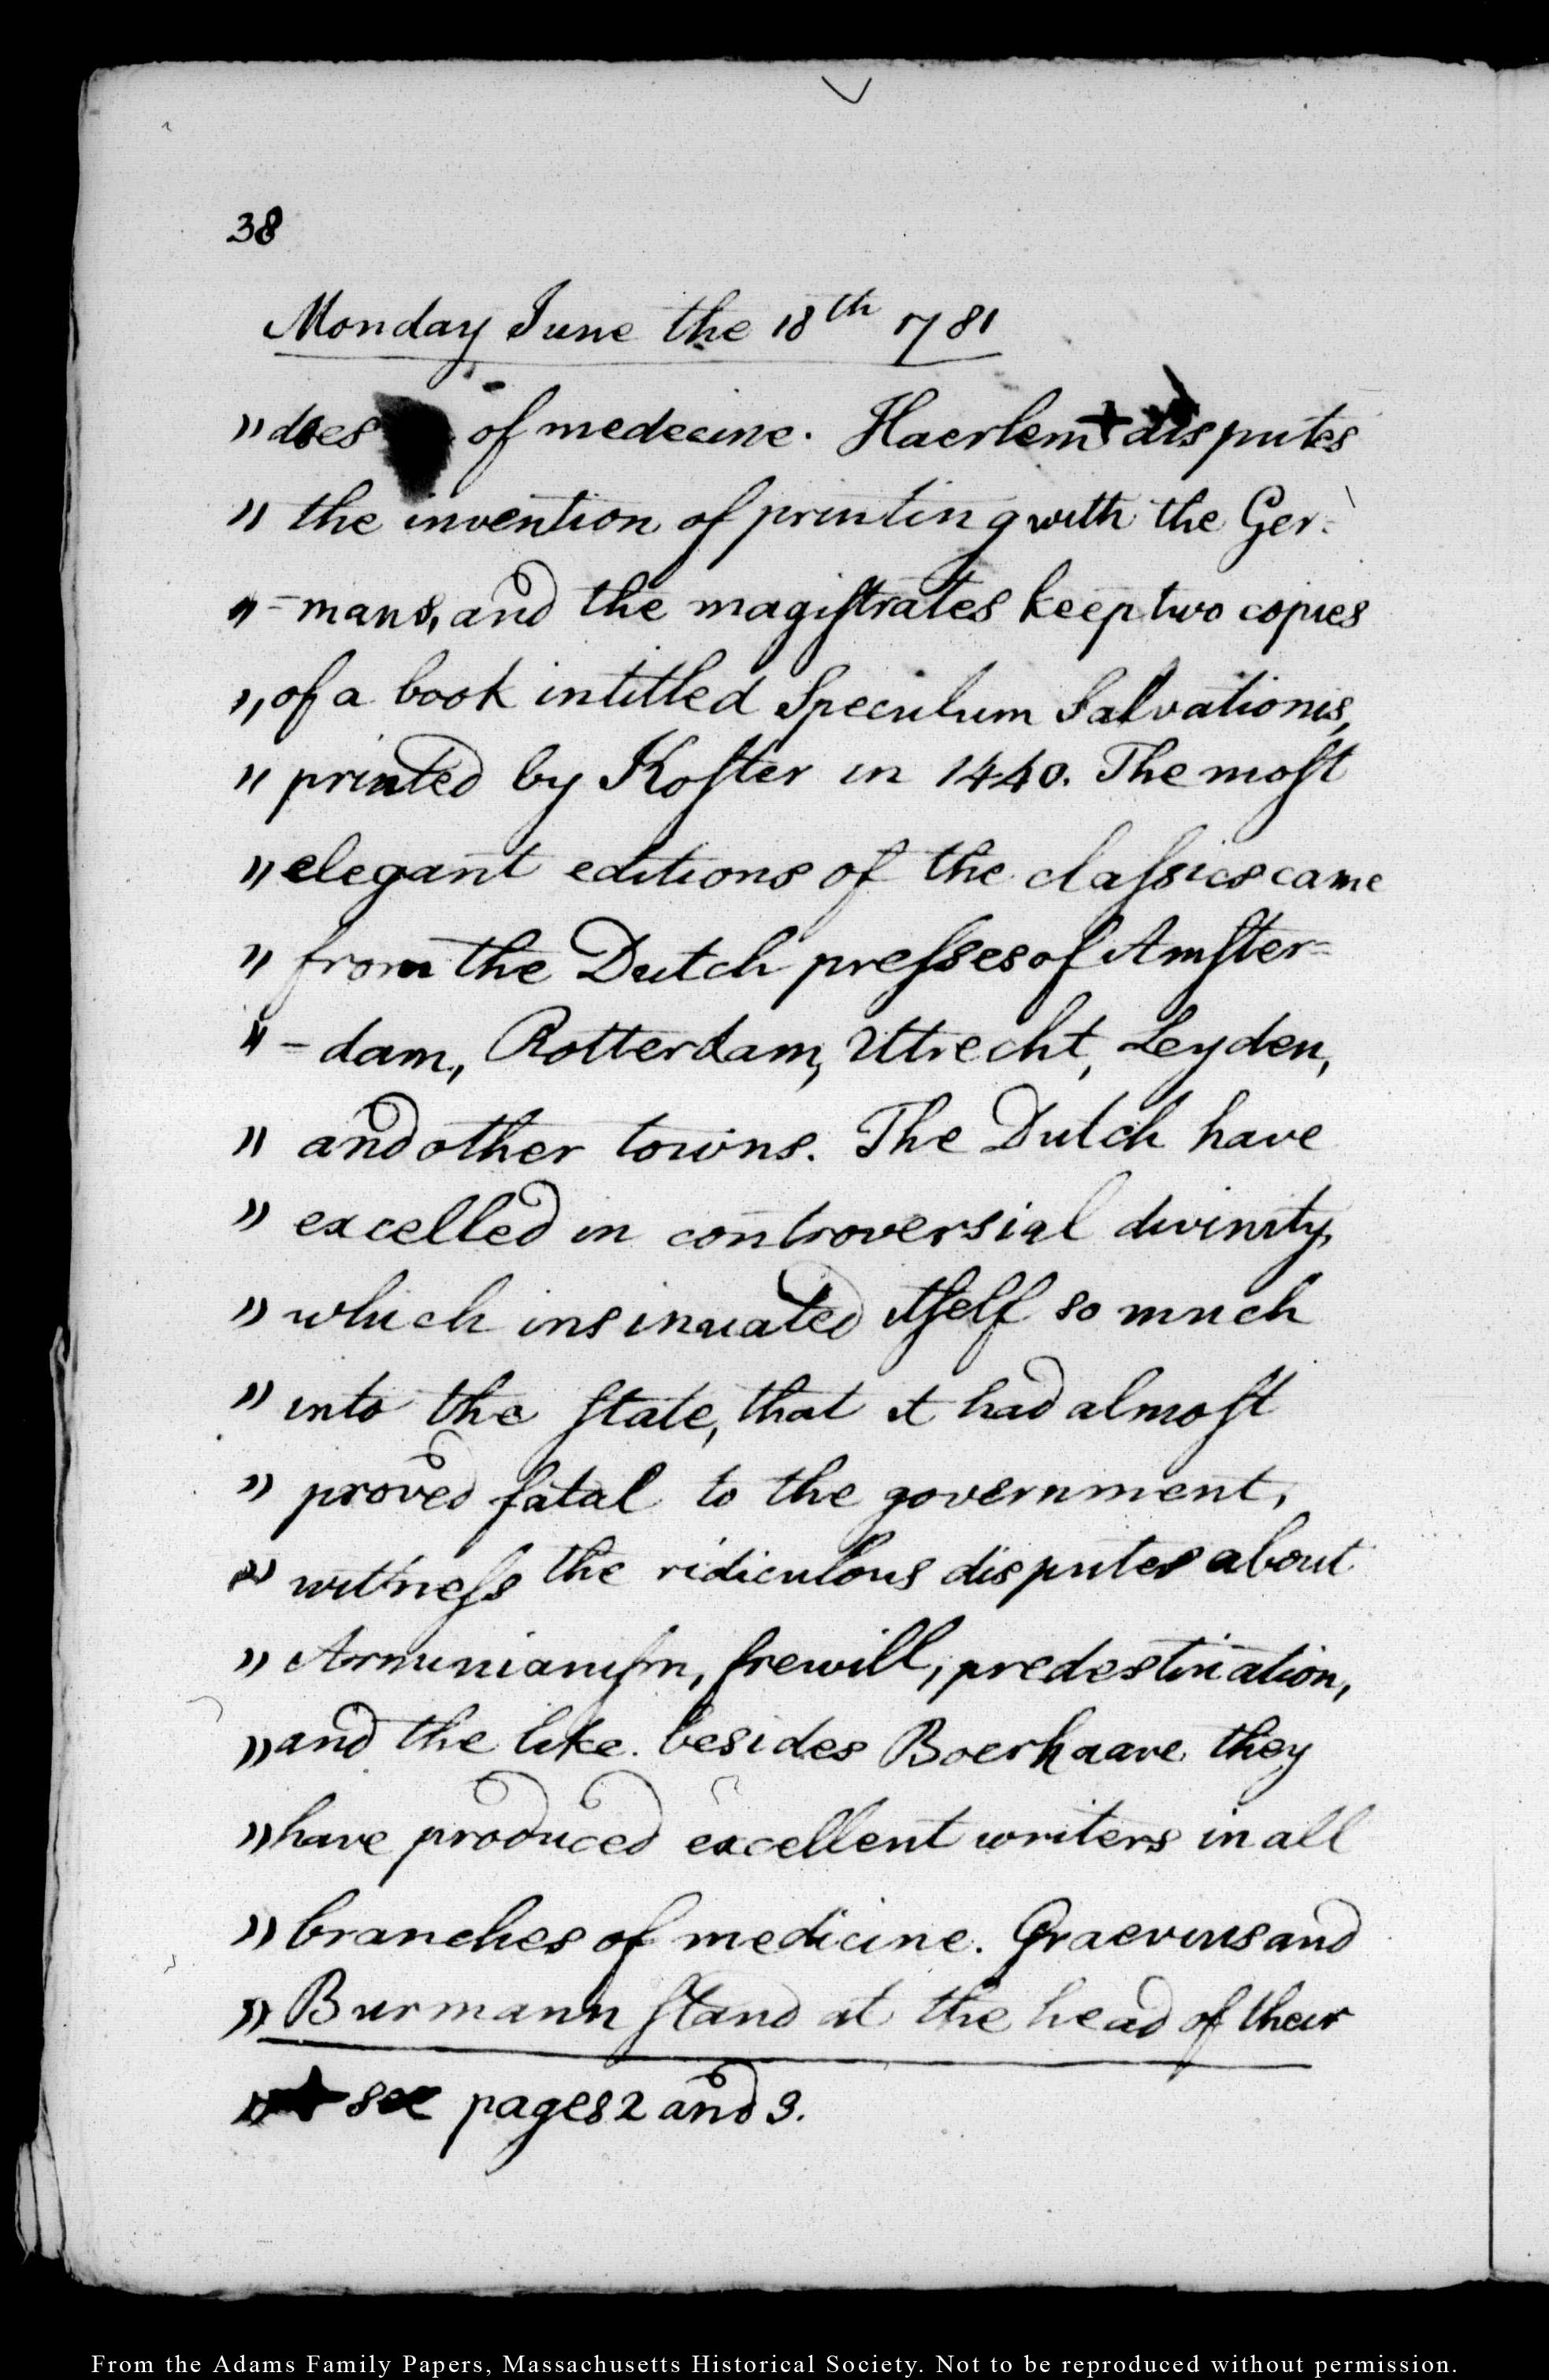 38
Monday June the 18th 1781
" does of medecine. Haerlem + disputes
" the invention of printing with the Ger-
" =mans, and the magistrates keep two copies
" of a book intitled Speculum Salvationis,
" printed by Koster in 1440. The most
" elegant editions of the classics came
" from the Dutch presses of Amster=
" -dam, Rotterdam, Uttrecht, Leyden,
" and other towns. The Dutch have
" excelled in controversial divinity,
" which insinuated itself so much
" into the state, that it had almost
" proved fatal to the government,
" wittness the ridiculous disputes about
" Arminianism, frewill, predestination,
" and the like. besides Boerhaave they
" have produced excellent writers in all
" branches of medicine. Graevius and
" Burmann stand at the head of their
" + see pages 2 and 3.
From the Adams Family Papers, Massachusetts Historical Society. Not to be reproduced without permission.